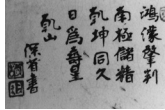 鴻濛肇判
南極儲精
乾坤同久
日為壽星
乾山
深省書